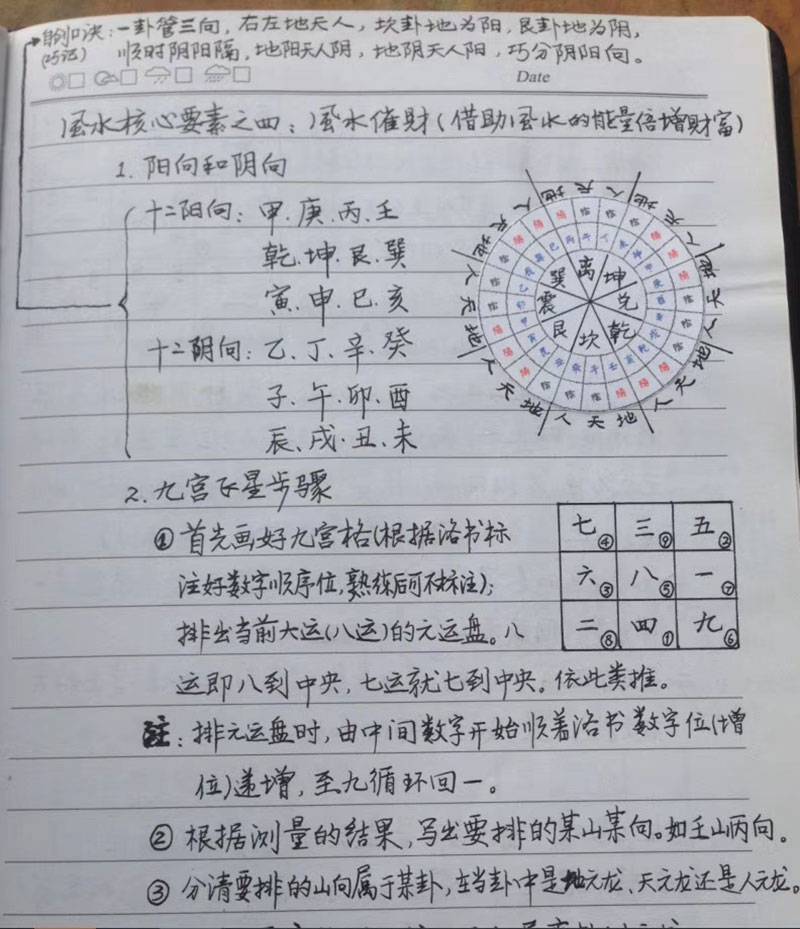 自创口诀:一卦管三向,右左地天人,坎卦地为阳,艮卦地为阴,
(巧记) 顺时阴阳隔,地阳天人阴,地阴天人阳,巧分阴阳向。
Date
风水核心要素之四:风水催财(借助风水的能量倍增财富)
1. 阳向和阴向
十二阳向:甲.庚.丙.壬
乾.坤.艮.巽
寅.申.巳.亥
十二阴向:乙.丁.辛.癸
子.午.卯.酉
辰、戌.丑.未
离 坤 兑 乾 坎 艮 震 巽
2. 九宫飞星步骤
① 首先画好九宫格(根据洛书标
注好数字顺序位,熟练后可不标注);
排出当前大运(八运)的元运盘。八
七④ 三⑨ 五②
六③ 八⑤ 一⑦
二⑧ 四① 九⑥
运即八到中央,七运就七到中央。依此类推。
注:排元运盘时,由中间数字开始顺着洛书数字位(增
位)递增,至九循环回一。
② 根据测量的结果,写出要排的某山某向。如壬山丙向。
③ 分清要排的山向属于某卦,在当卦中是地元龙、天元龙还是人元龙。